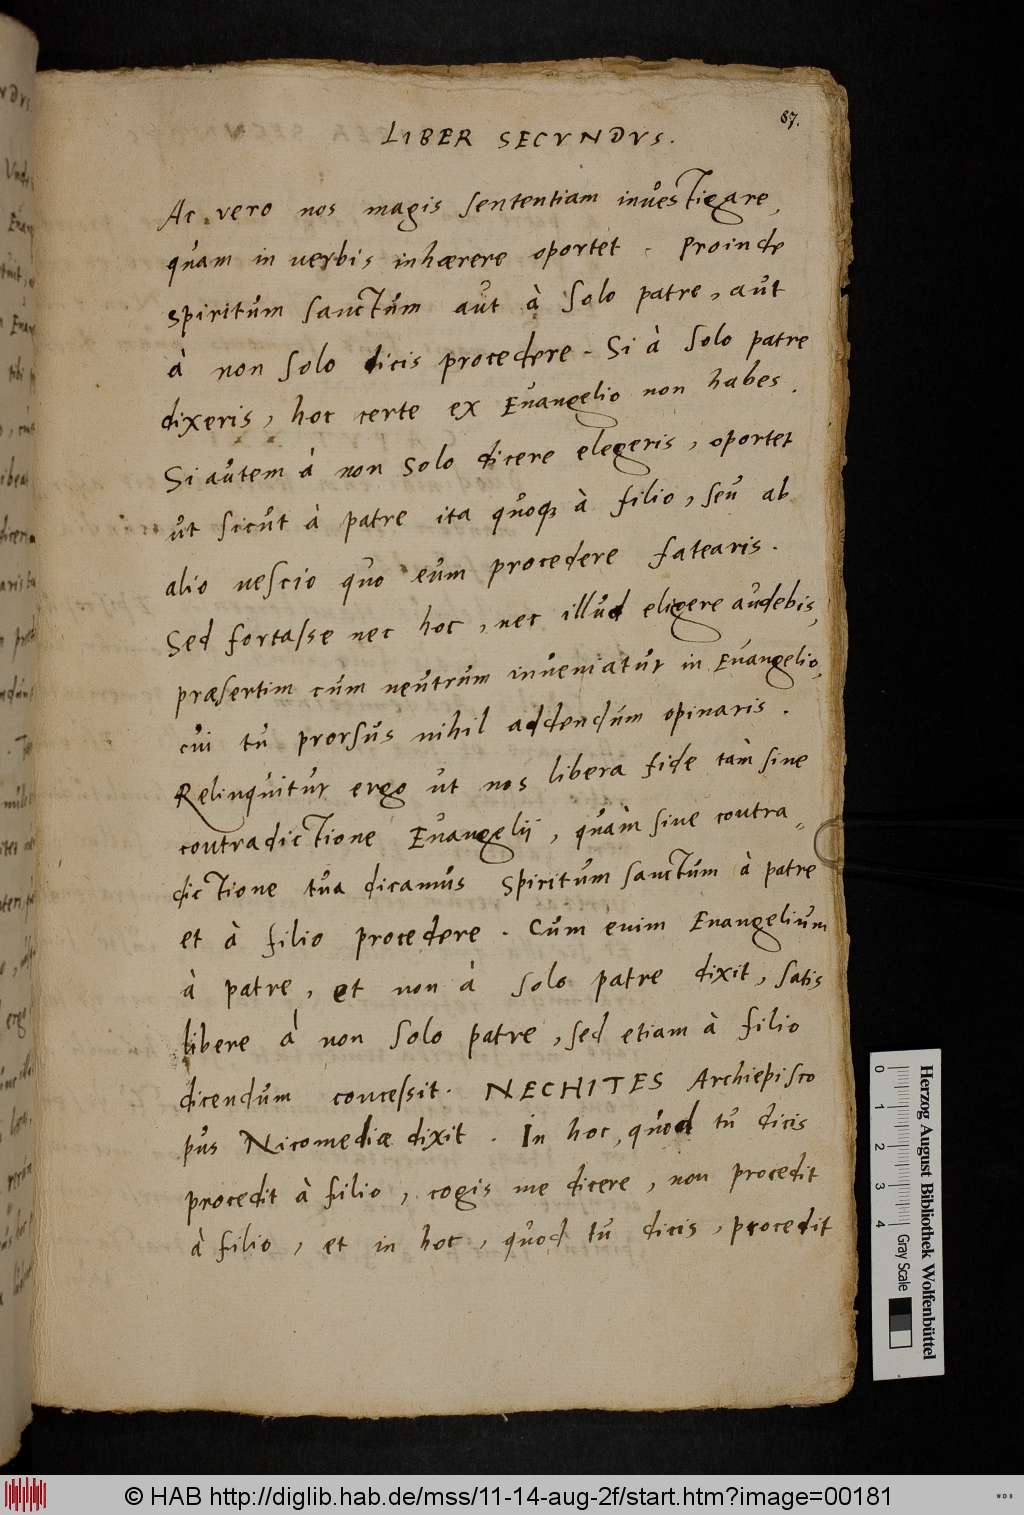 87.
LIBER SECVNDVS.
Ac vero nos magis sententiam investigare,
quam in verbis inhærere oportet. Proinde
spiritum sanctum aut à solo patre, aut
à non solo dicis procedere. Si à solo patre
dixeris, hoc certe ex Evangelio non habes.
Si autem à non solo dicere elegeris, oportet
ut sicut à patre ita quoq; à filio, seu ab
alio nescio quo eum procedere fatearis.
Sed fortasse nec hoc, nec illud eligere audebis,
præsertim cum neutrum inveniatur in Evangelio,
cui tu prorsus nihil addendum opinaris.
Relinquitur ergo ut nos libera fide tàm sine
contradictione Evangelij, quàm sine contra„
dictione tua dicamus spiritum sanctum à patre
et à filio procedere. Cum enim Evangelium
à patre, et non à solo patre dixit, satis
libere à non solo patre, sed etiam à filio
dicendum concessit. NECHITES Archiepisco
pus Nicomediæ dixit. In hoc, quod tu dicis
procedit à filio, cogis me dicere, non procedit
à filio, et in hoc, quod tu dicis, procedit
0 1 2 3 4 Gray Scale
Herzog August Bibliothek Wolfenbüttel
© HAB http://diglib.hab.de/mss/11-14-aug-2f/start.htm?image=00181